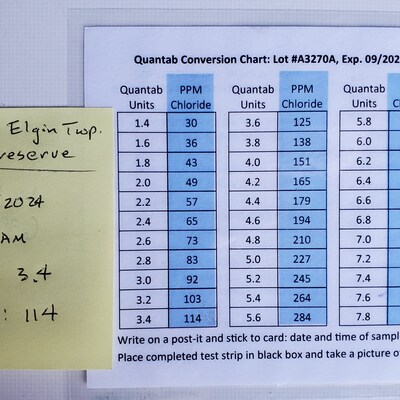 Quantab Conversion Chart: Lot #A3270A, Exp. 09/202
Quantab Units PPM Chloride Quantab Units PPM Chloride Quantab Units
1.4 30 3.6 125 5.8
1.6 36 3.8 138 6.0
1.8 43 4.0 151 6.2
2.0 49 4.2 165 6.4
2.2 57 4.4 179 6.6
2.4 65 4.6 194 6.8
2.6 73 4.8 210 7.0
2.8 83 5.0 227 7.2
3.0 92 5.2 245 7.4
3.2 103 5.4 264 7.6
3.4 114 5.6 284 7.8
Write on a post-it and stick to card: date and time of sample
Place completed test strip in black box and take a picture of
Elgin Twp.
reserve
2024
AM
3.4
: 114